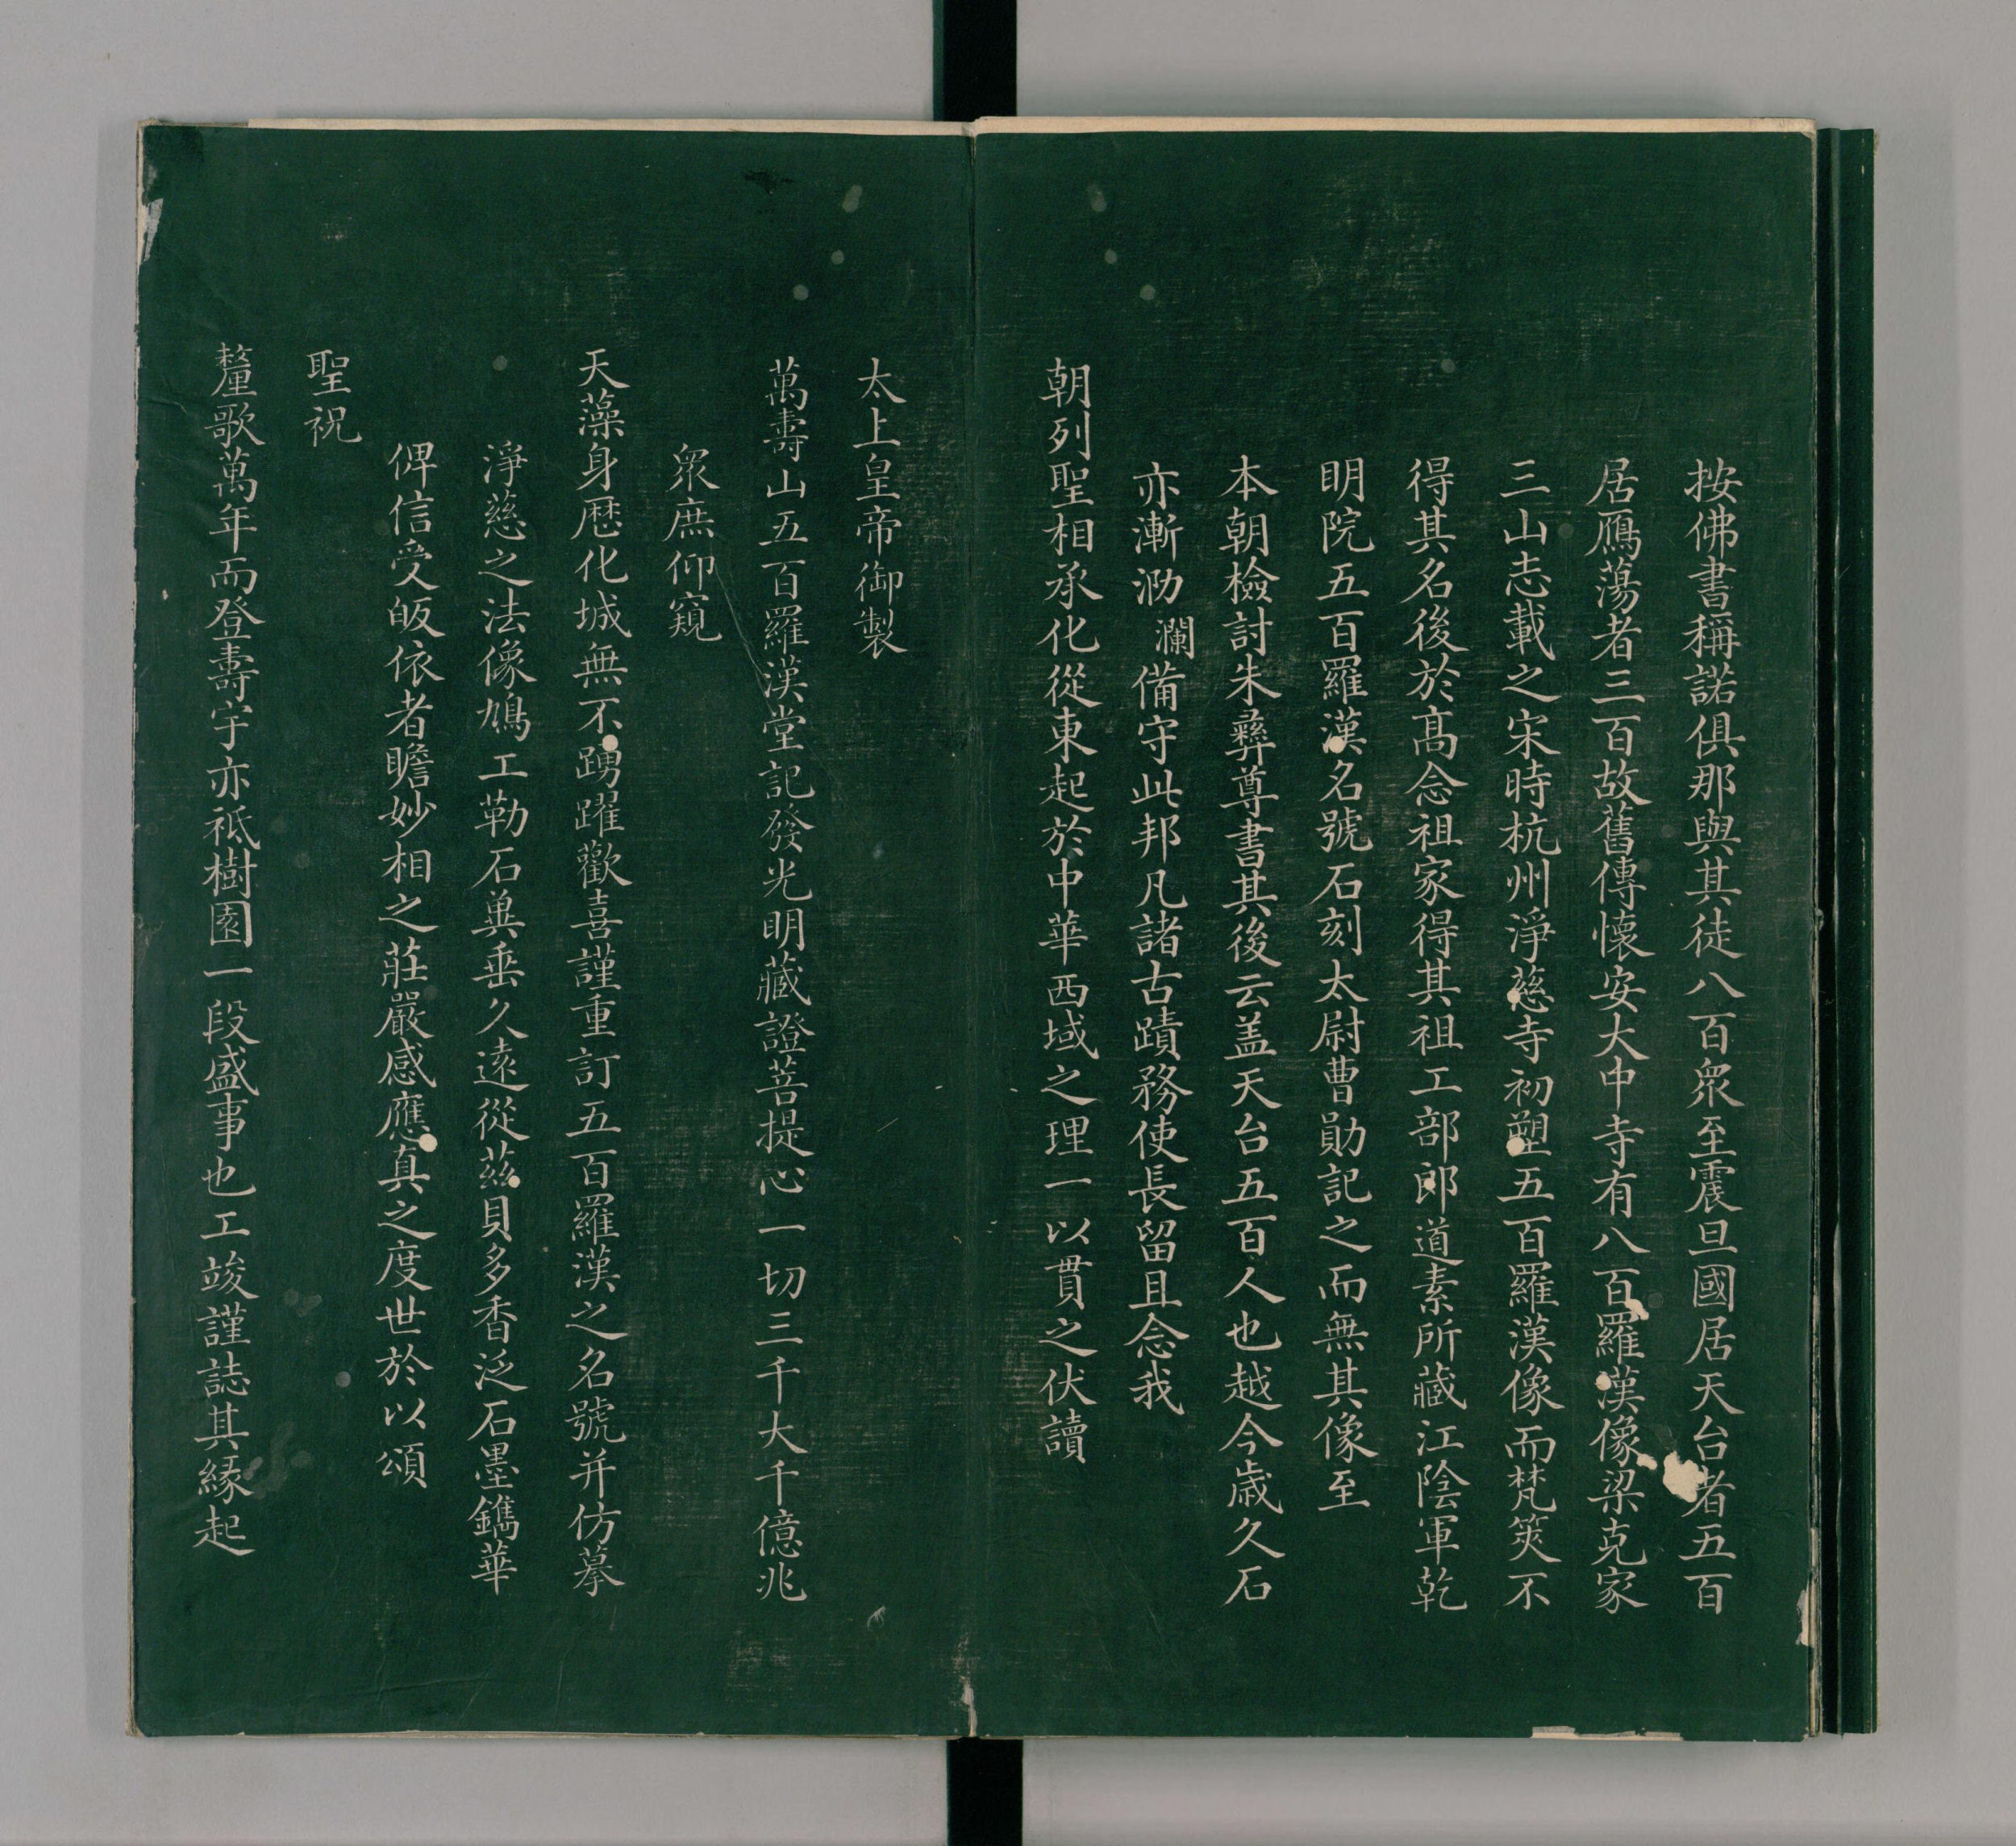 按佛書稱諾俱那與其徒八百眾至震旦國居天台者五百
居鴈蕩者三百故舊傳懷安大中寺有八百羅漢像梁克家
三山志載之宋時杭州淨慈寺初塑五百羅漢像而梵筴不
得其名後於髙念祖家得其祖工部郎道素所藏江陰軍乾
明院五百羅漢名號石刻太尉曹勛記之而無其像至
本朝檢討朱彝尊書其後云盖天台五百人也越今歲久石
亦漸泐瀾備守此邦凡諸古蹟務使長留且念我
朝列聖相承化從東起於中華西域之理一以貫之伏讀
太上皇帝御製
萬壽山五百羅漢堂記發光明藏證菩提心一切三千大千億兆
眾庶仰窺
天藻身歷化城無不踴躍歡喜謹重訂五百羅漢之名號并仿摹
淨慈之法像鳩工勒石冀垂久遠從茲貝多香泛石墨鐫華
俾信受皈依者瞻妙相之莊嚴感應真之度世於以頌
聖祝
釐歌萬年而登壽宇亦祗樹園一段盛事也工竣謹誌其緣起